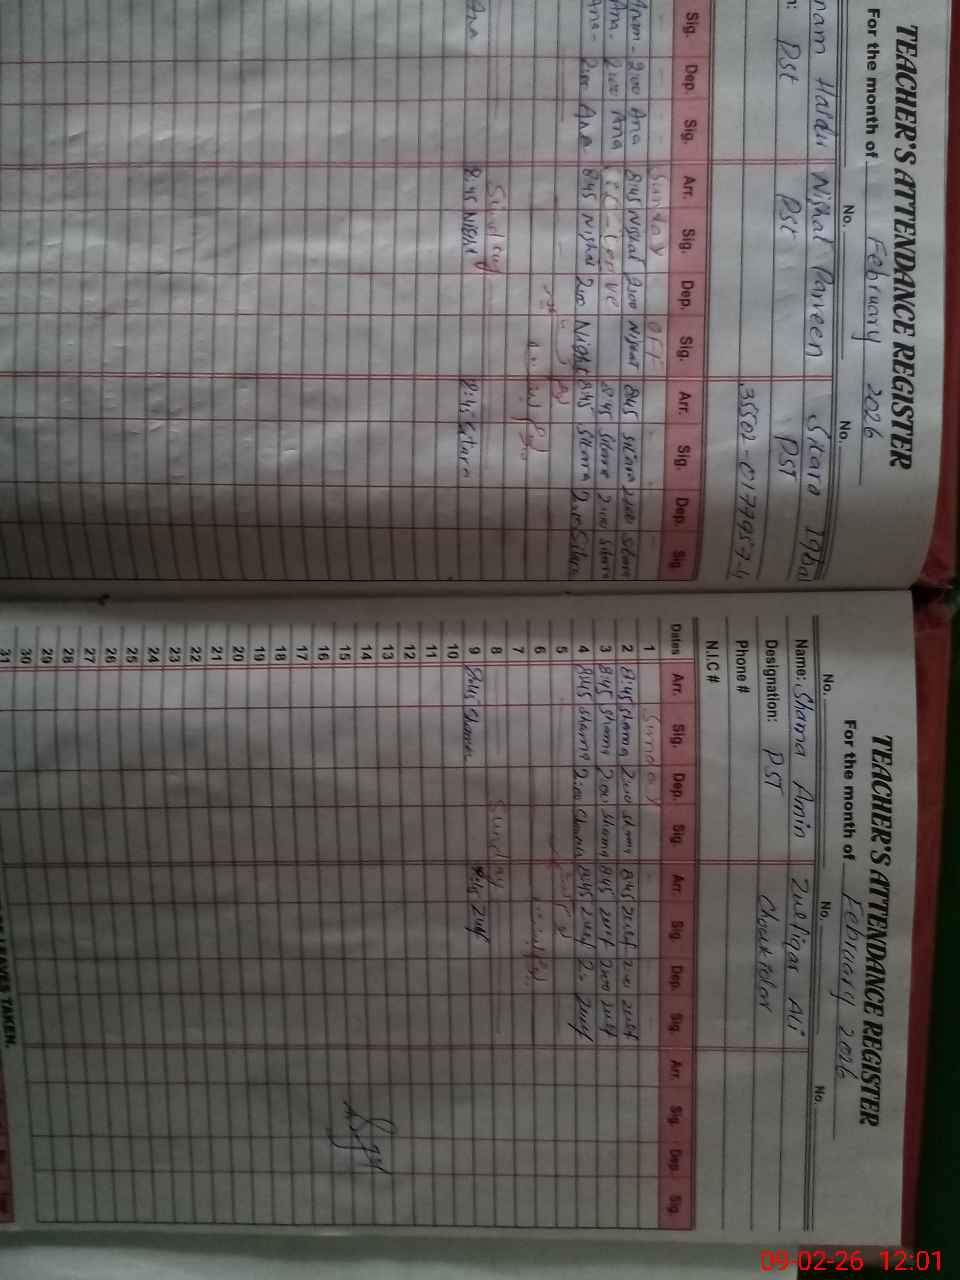 TEACHER'S ATTENDANCE REGISTER
For the month of February 2026
No. No.
Nishat Parveen Sitara Iqbal
Pst Pst PST
35502-0177957-4
Sig. Dep. Sig. Arr. Sig. Dep. Sig. Arr. Sig. Dep. Sig.
Sunday OFF
Anam 2:00 Ana 8:45 Nishat 2:00 Nishat 8:45 Sitara 2:00 Sitara
Ana 2:00 Ana Leave 8:45 Sitara 2:00 Sitara
Ana 2:00 Ana 8:45 Nishat 2:00 Nishat 8:45 Sitara 2:00 Sitara
Sunday
Ana 8:45 Nishat 8:45 Sitara
TEACHER'S ATTENDANCE REGISTER
For the month of February 2026
No. No. No.
Name: Shama Amin Zulfiqar Ali
Designation: PST Chowkidar
Phone #
N.I.C #
Dates Arr. Sig. Dep. Sig. Arr. Sig. Dep. Sig. Arr. Sig. Dep. Sig.
1 Sunday
2 8:45 Shama 2:00 Shama 8:45 Zulf 2:00 Zulf
3 8:45 Shama 2:00 Shama 8:45 Zulf 2:00 Zulf
4 8:45 Shama 2:00 Shama 8:45 Zulf 2:00 Zulf
5
6
7
8 Sunday
9 8:45 Shama 8:45 Zulf
10
11
12
13
14
15
16
17
18
19
20
21
22
23
24
25
26
27
28
29
30
31
LEAVES TAKEN.
09-02-26 12:01